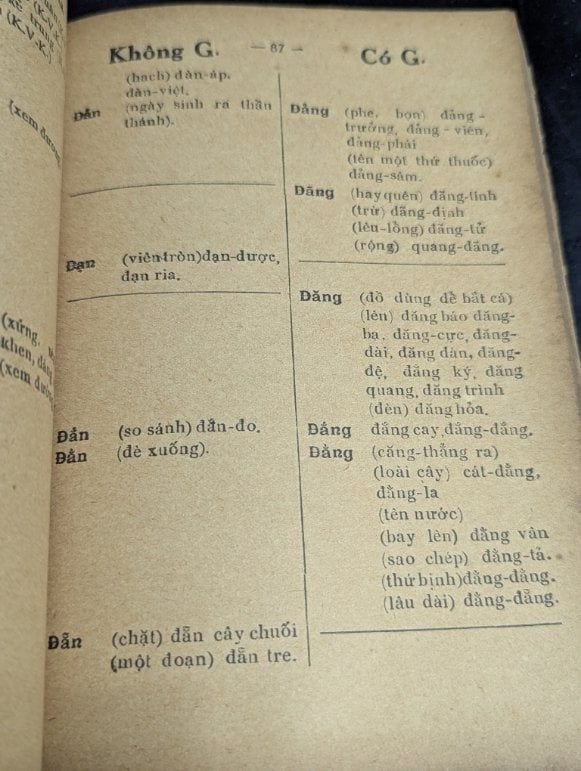 Không G.
— 87 —
Có G.
(hach) đàn-áp.
đàn-việt.
Đản (ngày sinh ra thần
thánh).
Đạn (viên tròn)đạn-dược,
đạn ria.
Đắn (so sánh) đắn-đo.
Đằn (đè xuống).
Đẵn (chặt) đẵn cây chuối
(một đoạn) đẵn tre.
Đảng (phe, bọn) đảng-
trưởng, đảng-viên,
đảng-phái
(tên một thứ thuốc)
đảng-sâm.
Đãng (hay quên) đãng-tính
(trừ) đãng-định
(lêu-lổng) đãng-tử
(rộng) quang-đãng.
Đăng (đồ dùng để bắt cá)
(lên) đăng báo đăng-
bạ, đăng-cực, đăng-
dài, đăng đàn, đăng-
đệ, đăng ký, đăng
quang, đăng trình
(đèn) đăng hỏa.
Đắng đắng cay, đăng-đắng.
Đằng (căng-thẳng ra)
(loài cây) cát-đằng,
đằng-la
(tên nước)
(bay lên) đằng vân
(sao chép) đằng-tả.
(thứ bịnh)đằng-đằng.
(lâu dài) đằng-đẵng.
(xem
(xứng,
khen,
(xem
(K.V.K.)